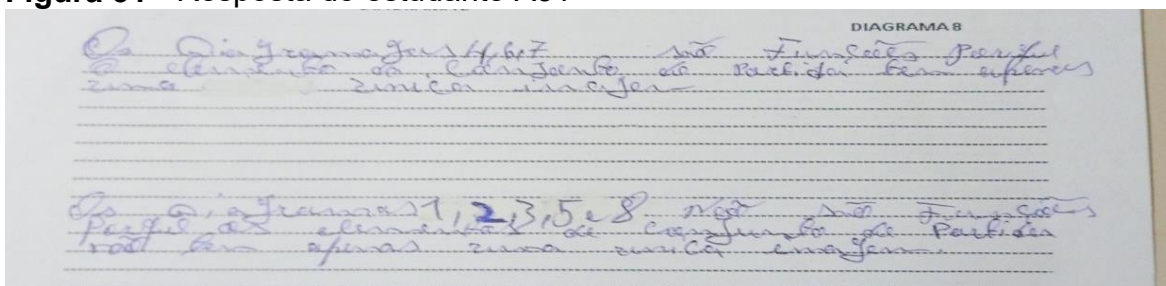 DIAGRAMA 8
Os Diagramas 4,6e7 são Funções Porque
o elemento do Conjunto de Partida tem apenas
uma única imagem
Os Diagramas 1, 2, 3, 5 e 8 não são Funções
Porque os elementos do Conjunto de Partida
não tem apenas uma unica imagem.